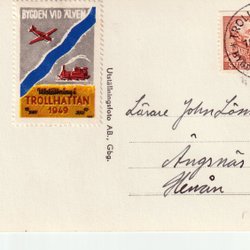 BYGDEN VID ÄLVEN
Utställning i
TROLLHÄTTAN
1949
Utställningsfoto AB., Gbg.
TROL
Lärare John Löm
Ängsnäs
Henån